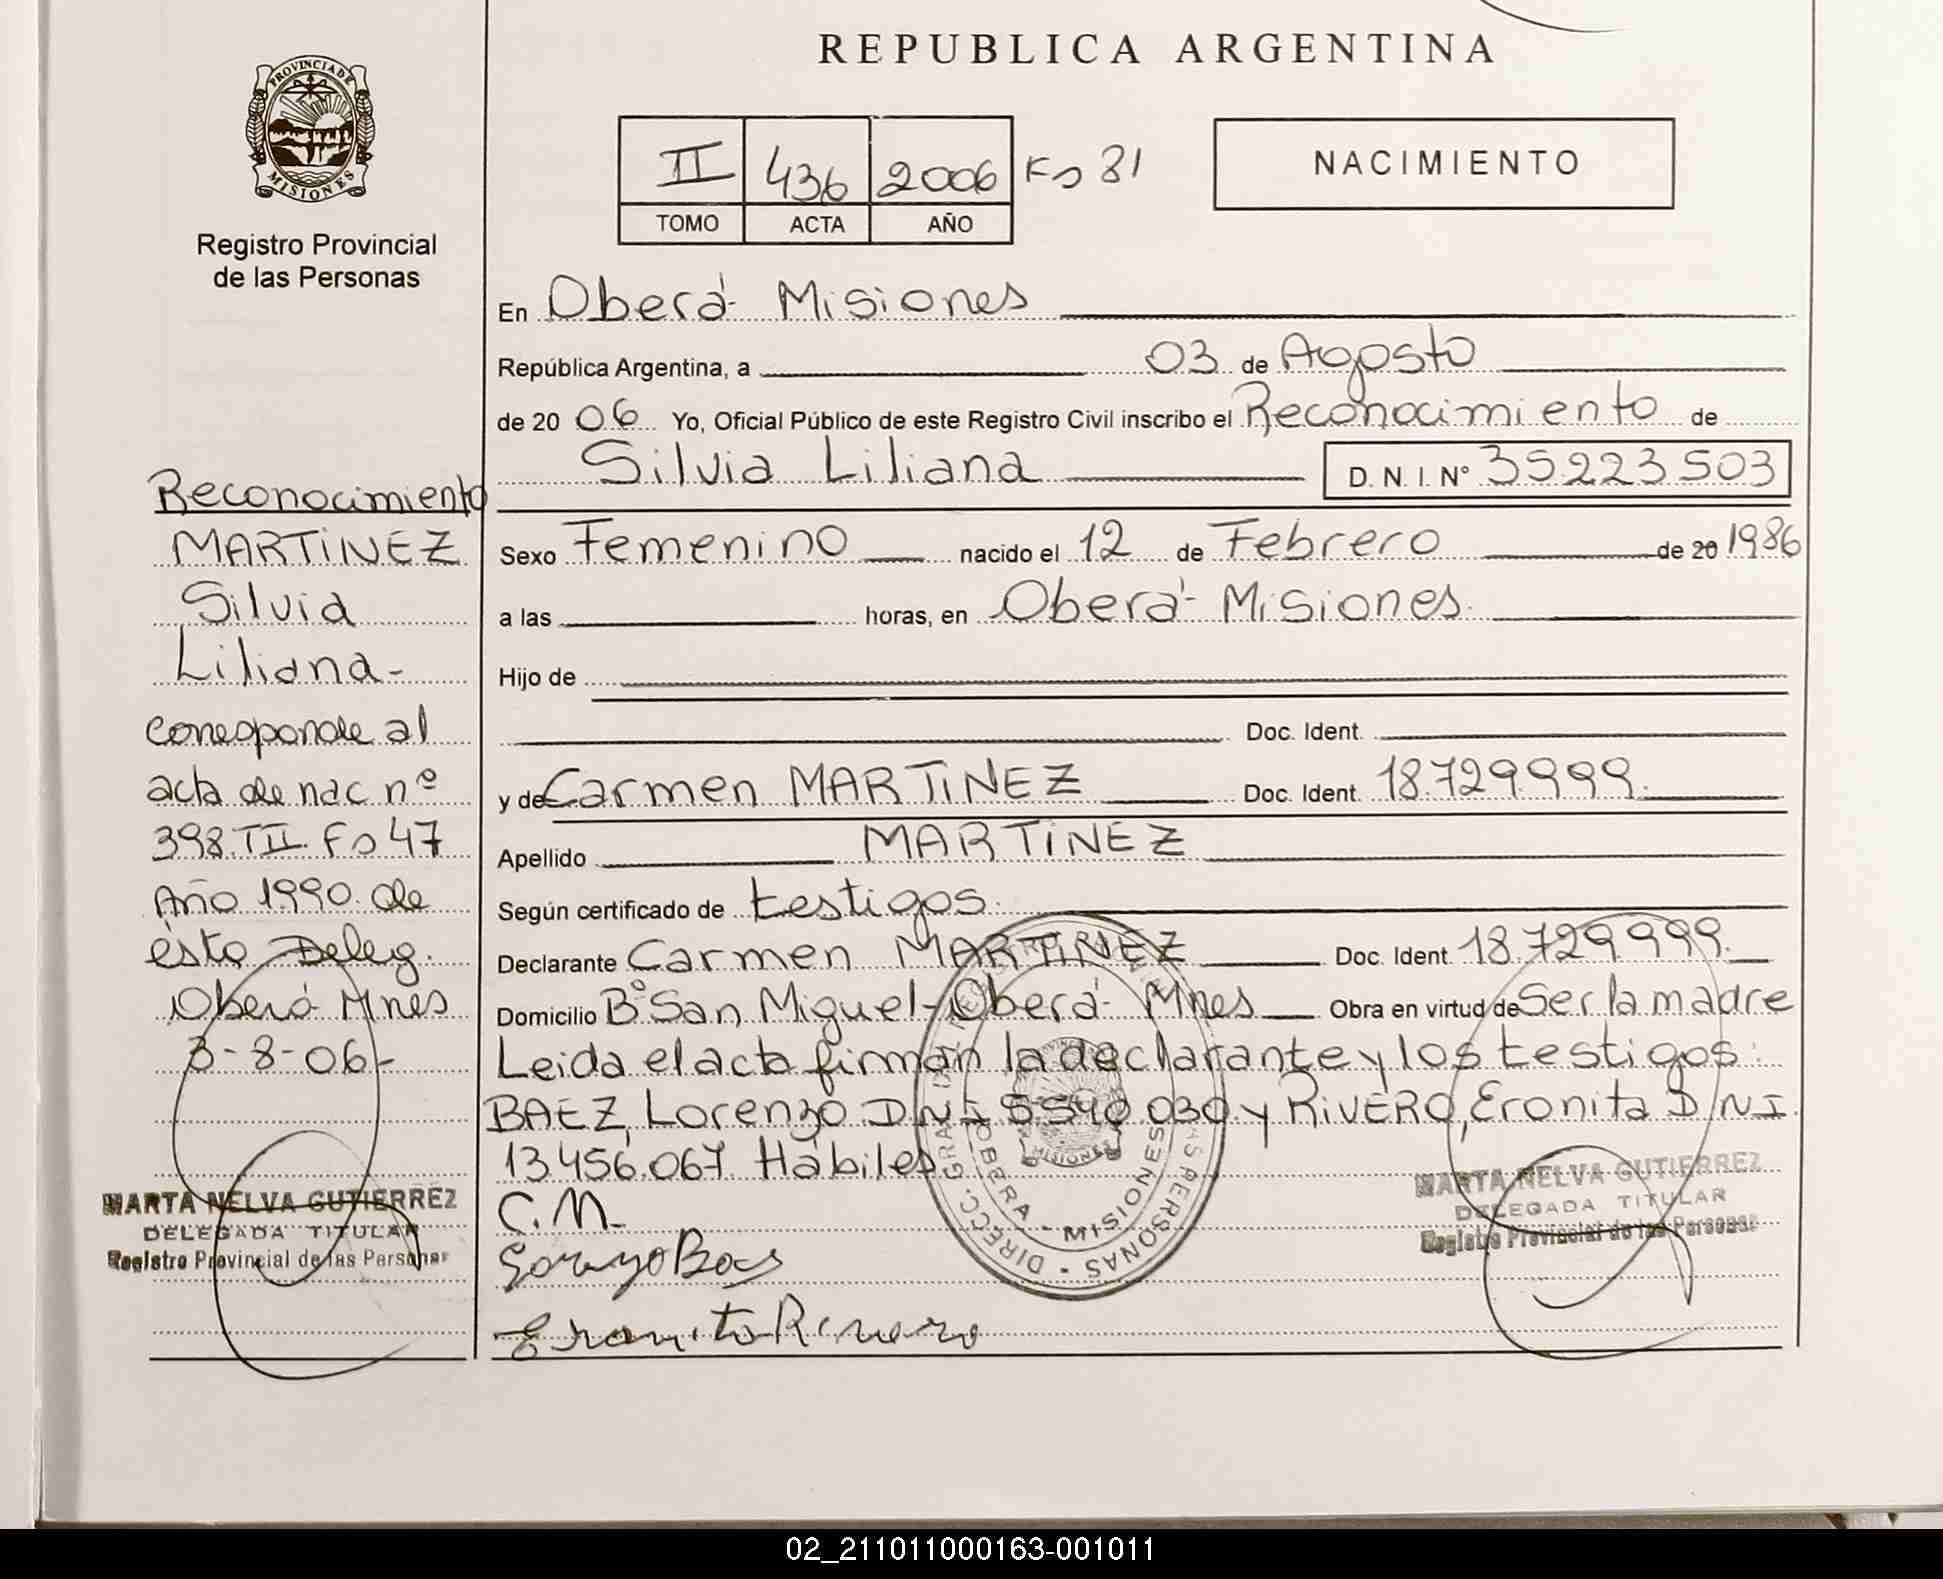 REPUBLICA ARGENTINA
PROVINCIA DE MISIONES
Registro Provincial
de las Personas
II 436 2006 Fo 81
TOMO ACTA AÑO
NACIMIENTO
En Oberá- Misiones
República Argentina, a 03 de Agosto
de 20 06 Yo, Oficial Público de este Registro Civil inscribo el Reconocimiento de
Silvia Liliana D. N. I. Nº 35223503
Sexo Femenino nacido el 12 de Febrero de 20 1986
a las horas, en Oberá- Misiones.
Hijo de
Doc. Ident.
y de Carmen MARTiNEZ Doc. Ident. 18.729.999.
Apellido MARTiNEZ
Según certificado de testigos.
Declarante Carmen MARTiNEZ Doc. Ident. 18.729999.
Domicilio Bº San Miguel-Oberá- Mnes Obra en virtud de Ser la madre
Leida el acta firman la declarante y los testigos:
BAEZ, Lorenzo D.N.I 5540.030 y RiVERO, Eronita D.N.I
13.456.067. Hábiles
C.M.
Eronita Rivero
Reconocimiento
MARTiNEZ
Silvia
Liliana-
corresponde al
acta de nac nº
398.TII. Fo 47
Año 1990. de
ésta Deleg.
Oberá- Mnes
3-8-06-
MARTA NELVA GUTIERREZ
DELEGADA TITULAR
Registro Provincial de las Personas
MARTA NELVA GUTIERREZ
DELEGADA TITULAR
Registro Provincial de las Personas
OBERA - MISIONES
02_211011000163-001011